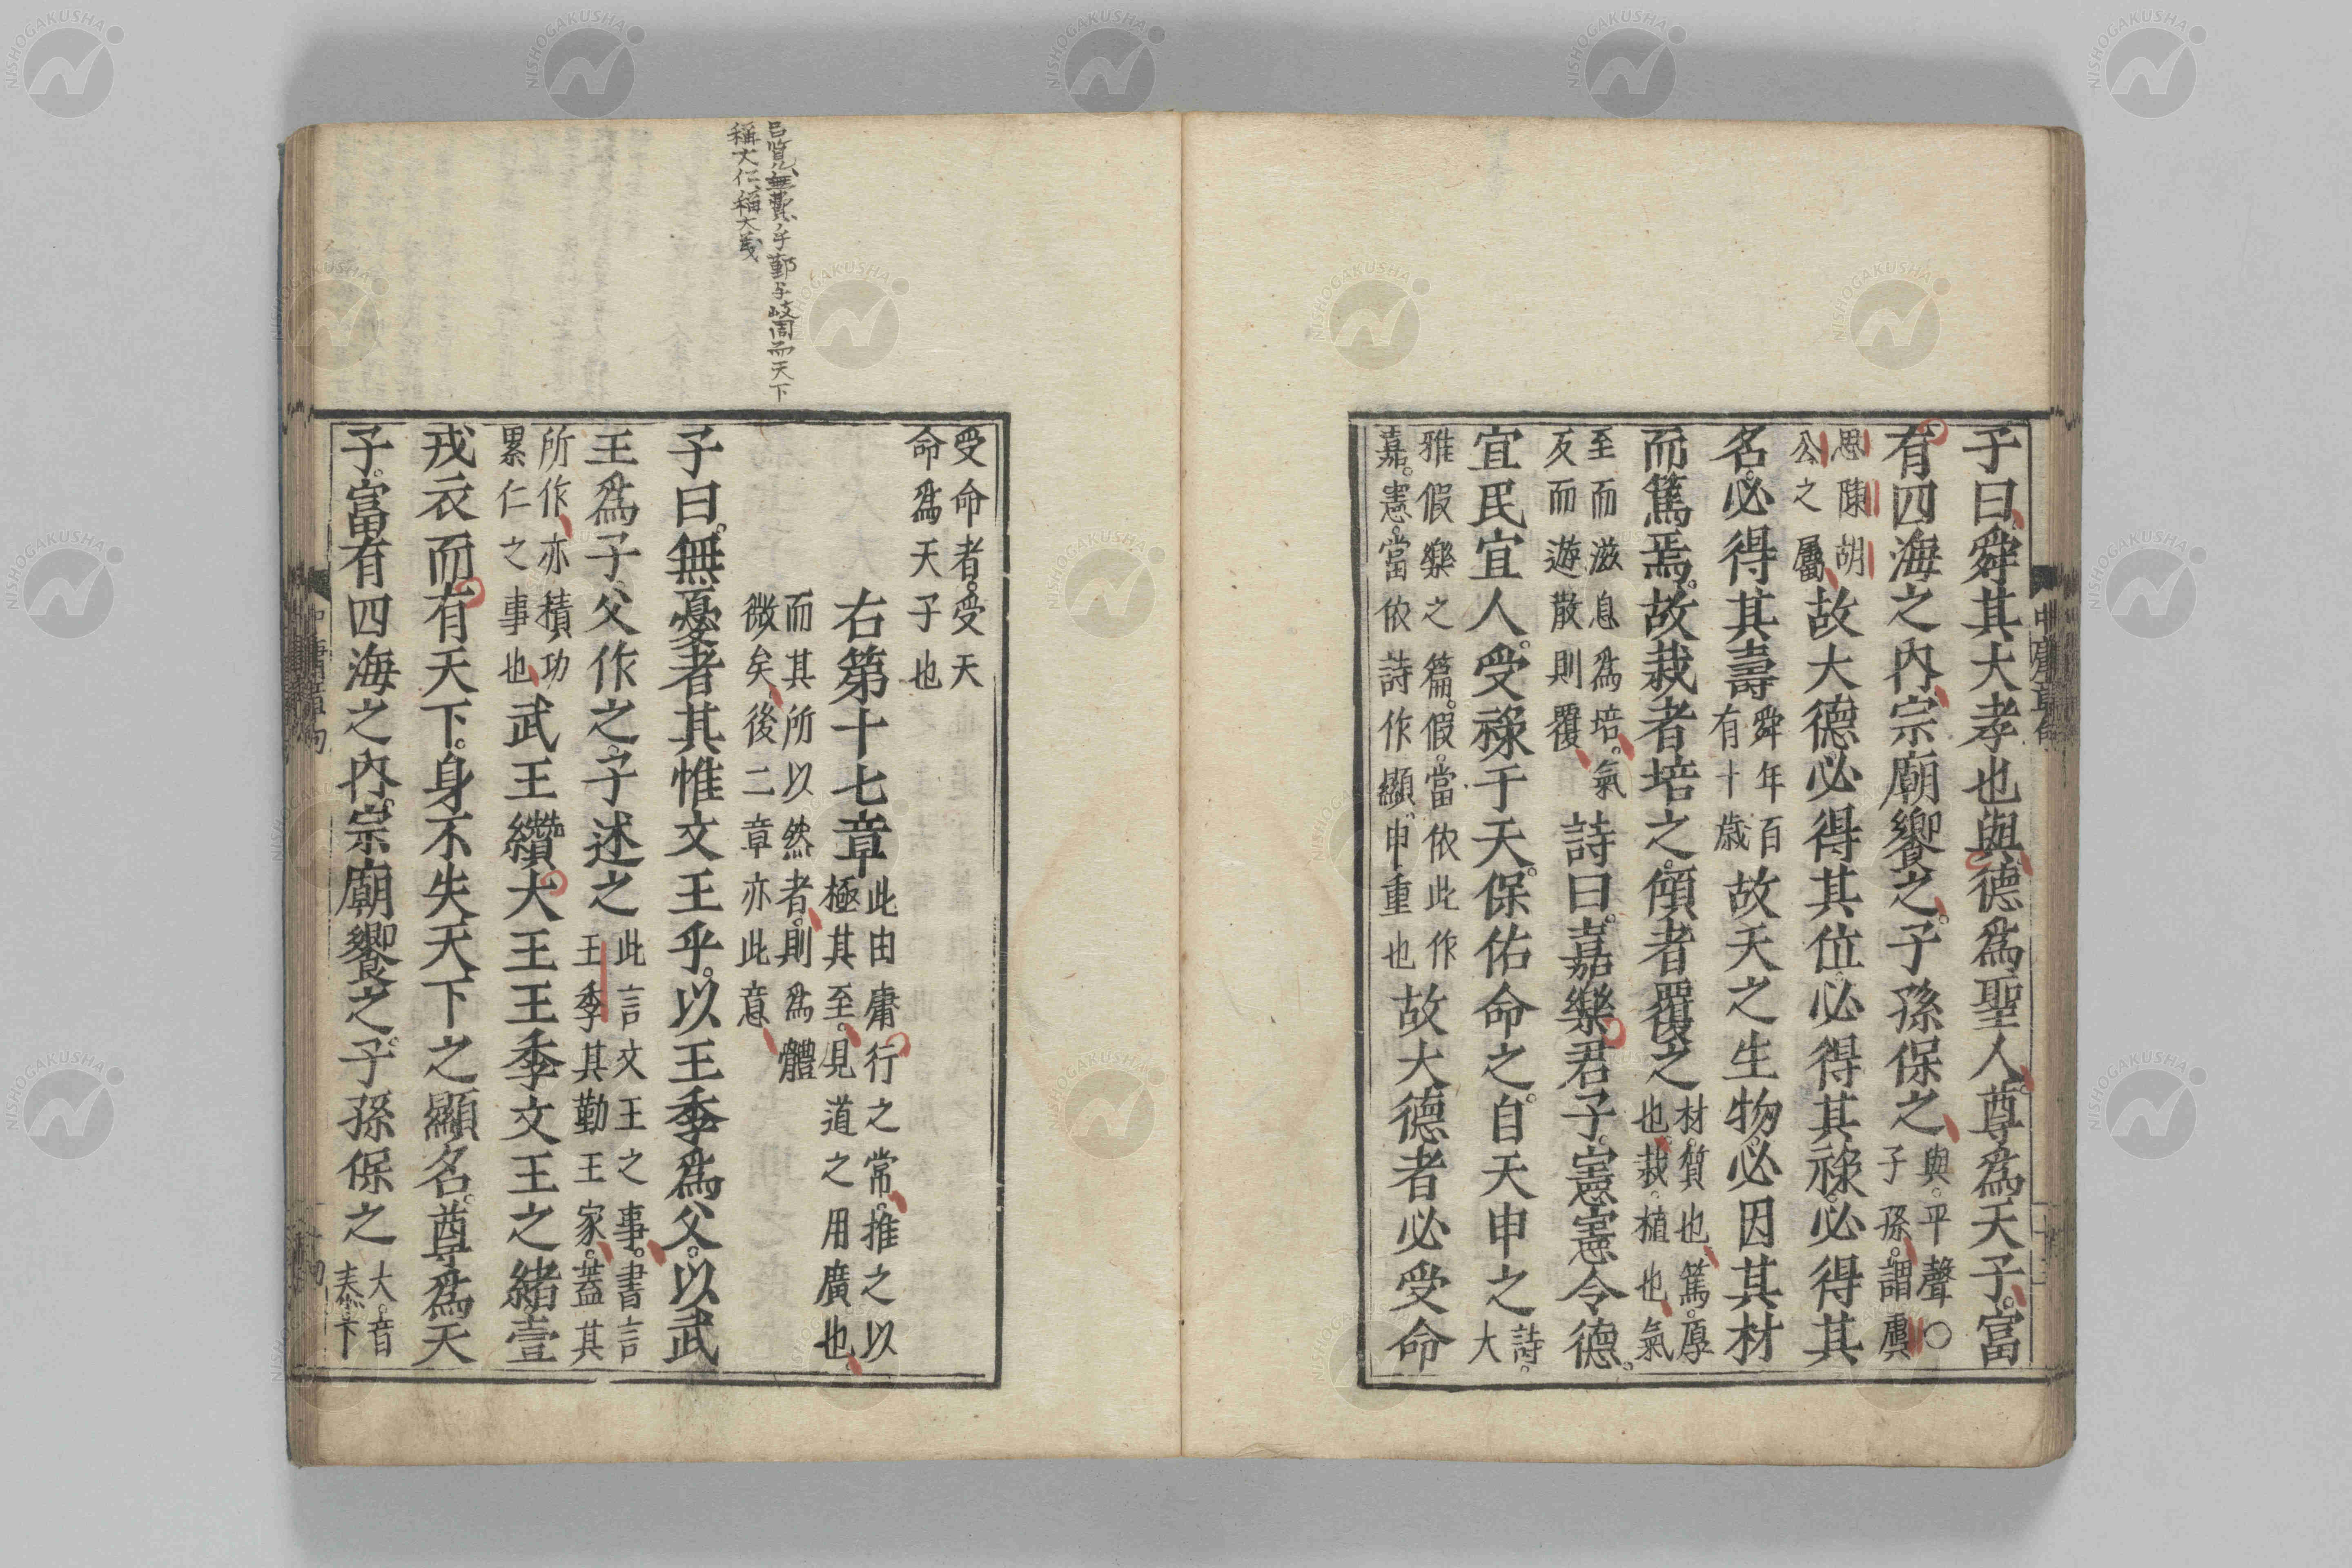 子曰舜其大孝也與德爲聖人尊爲天子富
有四海之內宗廟饗之子孫保之
與平聲○
子孫謂虞
思陳胡
公之屬
故大德必得其位必得其祿必得其
名必得其壽
舜年百
有十歲
故天之生物必因其材
而篤焉故栽者培之傾者覆之
材質也篤厚
也栽植也氣
至而滋息爲培氣
反而遊散則覆
詩曰嘉樂君子憲憲令德
宜民宜人受祿于天保佑命之自天申之
詩大
雅假樂之篇假當依此作
嘉憲當依詩作顯申重也
故大德者必受命
中庸章句
受命者受天
命爲天子也
右第十七章
此由庸行之常推之以
極其至見道之用廣也
而其所以然者則爲體
微矣後二章亦此意
子曰無憂者其惟文王乎以王季爲父以武
王爲子父作之子述之
此言文王之事書言
王季其勤王家蓋其
所作亦積功
累仁之事也
武王纘大王王季文王之緒壹
戎衣而有天下身不失天下之顯名尊爲天
子富有四海之內宗廟饗之子孫保之
大音
泰下
呂覽無費乎鄭与岐周而天下
稱大仁稱大義
NISHOGAKUSHA